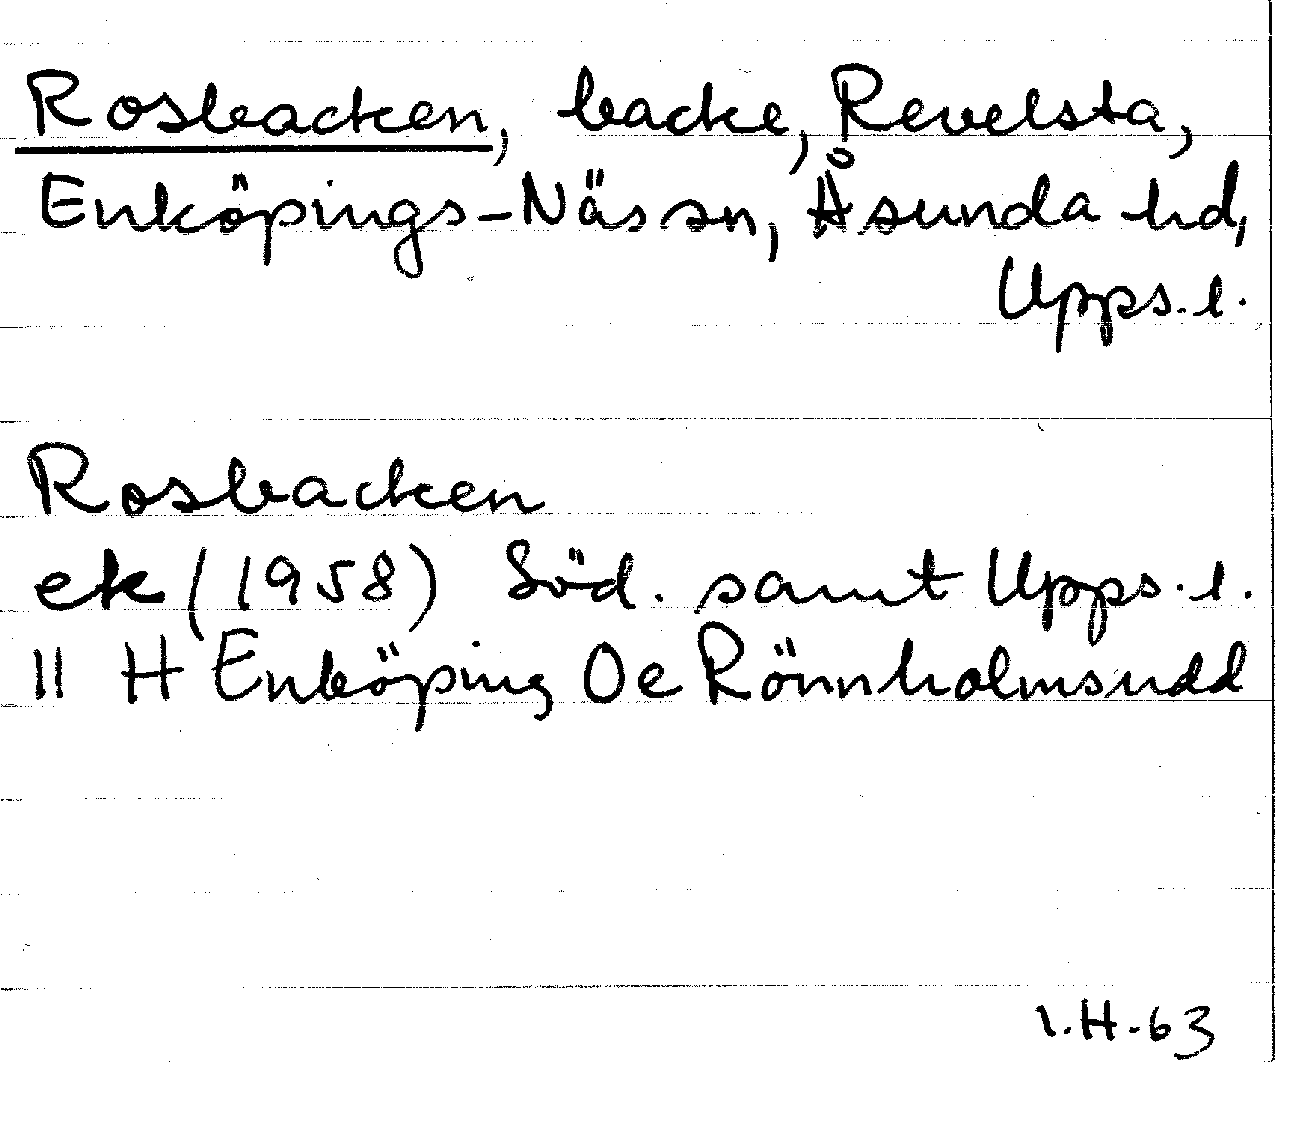 Rosbacken, backe, Revelsta,
Enköpings-Näs sn, Åsunda hd,
Upps. l.
Rosbacken
ek (1958) Söd. samt Upps. l.
11 H Enköping Oe Rönnholmsudd
I.H-63